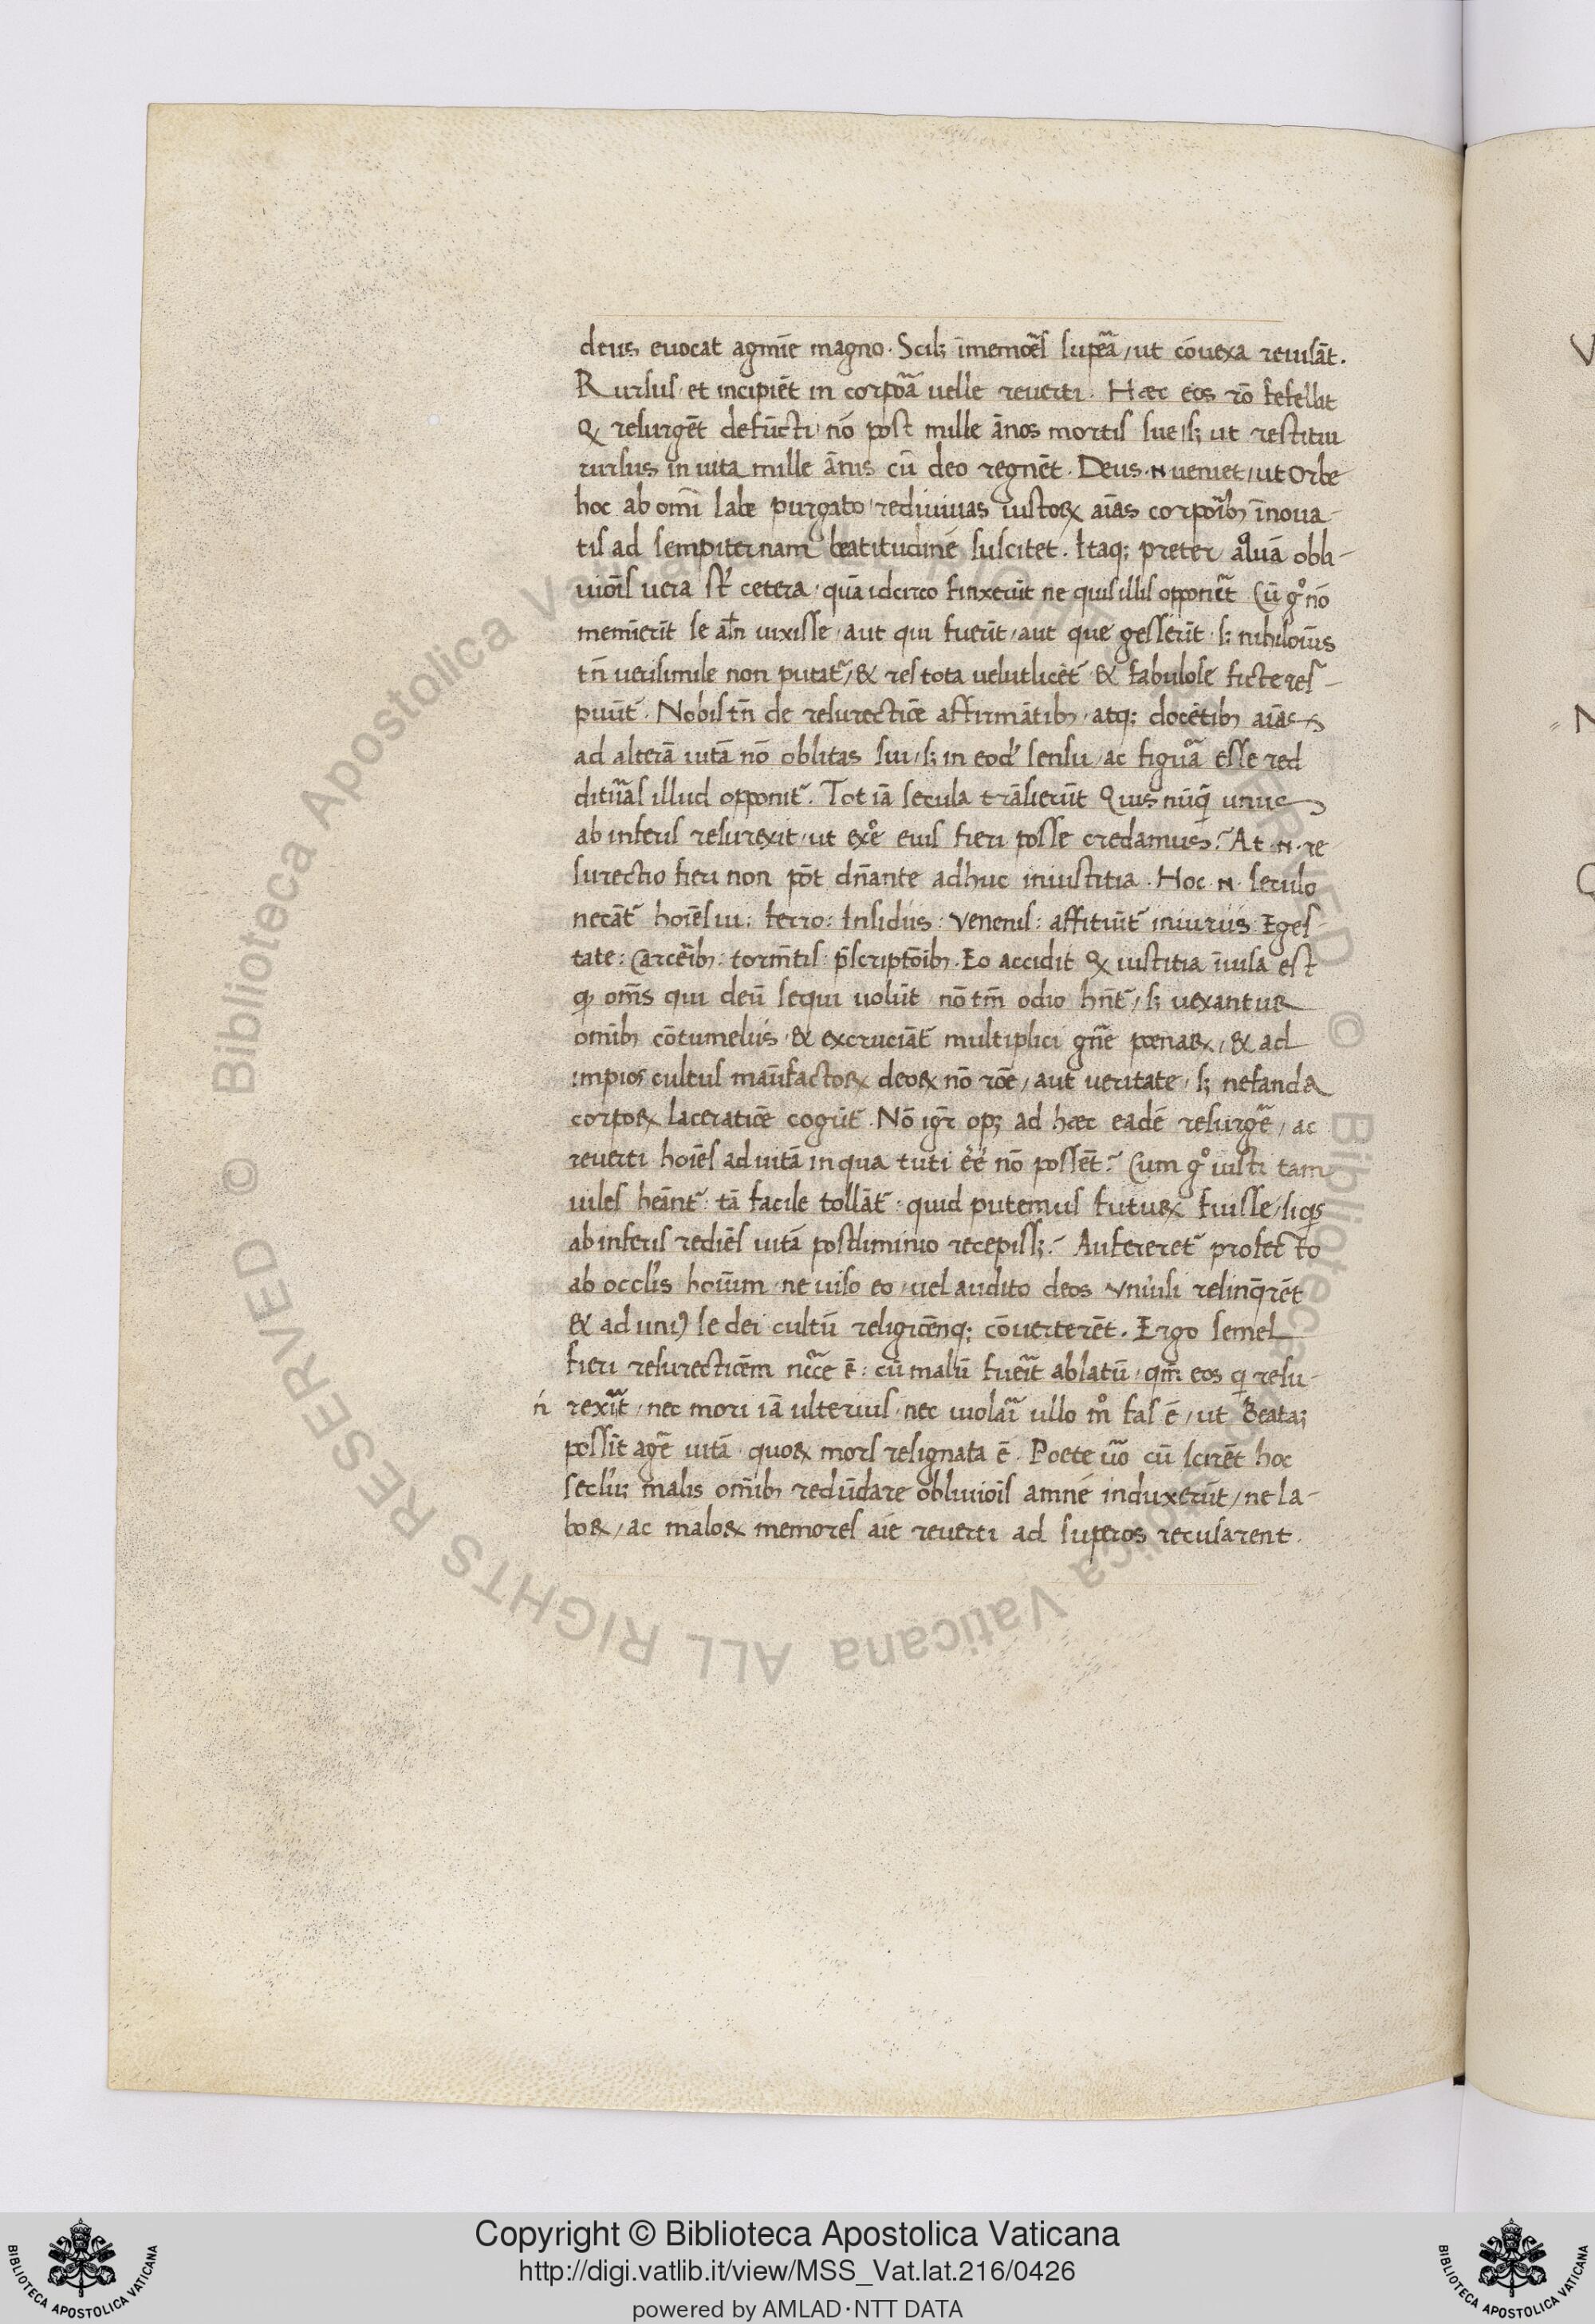 deus euocat agmīe magno. Scilꝫ īmemoēs supēa, ut cōuexa reuisāt.
Rursus, et incipiēt in corpōa uelle reuerti. Haec eos rō fefellit
ꝙ resurgēt defūcti, nō post mille ānos mortis sue, sꝫ ut restitui
rursus in uita mille ānis cū deo regnēt. Deus .n. ueniet, ut orbe
hoc ab omī labe purgato, rediuiuas iustoꝝ aīas corpoībꝫ īnoua-
tis ad sempiternam beatitudinē suscitet. Itaqꝫ preter aquā obli-
uiois uera st̄ cetera, quā idcirco finxerūt ne quis illis opponēt Cū gͦ nō
meminerīt se aln̄ uixisse, aut qui fuerīt, aut que gesserīt, sꝫ nihiloīus
tn̄ uerisimile non putat̄, & res tota uelut licēt̄ & fabulose ficte res-
puūt̄. Nobis tn̄ de resurectiōe affirmātibꝫ, atqꝫ docētibꝫ aīas
ad alterā uitā nō oblitas sui, sꝫ in eodē sensu, ac figuā esse red
dituas illud opponit̄. Tot iā secula trāsierūt Quis nūq̄ unus
ab inferis resurexit, ut exͦe eius fieri posse credamus? At .n. re
surectio fieri non pōt dn̄ante adhuc iniustitia. Hoc .n. seculo
necāt̄ hoīes ui: ferro: Insidiis: Venenis: affitiūt̄ iniuriis: Eges-
tate: Carcēibꝫ: torm̄tis: p̄scriptōibꝫ. Eo accidit ꝙ iustitia īuisa est
ꝙ oms̄ qui deū sequi uolūt nō tm̄ odio hn̄t̄, sꝫ uexantur
omībꝫ cōtumeliis, & excruciāt̄ multiplici gn̄e poenaꝝ, & ad
impios cultus manūfactoꝝ deoꝝ nō rōe, aut ueritate, sꝫ nefanda
corpoꝝ laceratiōe cogūt̄. Nō igr̄ opꝫ ad haec eadē resurgē, ac
reuerti hoīes ad uitā in qua tuti eē nō possēt? Cum gͦ iusti tam
uiles heānt̄ tā facile tollāt̄, quid putemus futuꝝ fuisse, siq̄s
ab inferis rediēs uitā postliminio recepissꝫ? Aufereret̄ profecto
ab occlis hoium, ne uiso eo, uel audito deos uniusi relinq̄rēt
& ad uniꝰ se dei cultū religiōenqꝫ cōuerterēt. Ergo semel
fieri resurectiōem nc̄ce ē: cū malū fueīt ablatū, qm̄ eos q̄ resu-
n̄ rexīt, nec mori iā ulterius, nec uiolaī ullo mͦ fas ē, ut Beataꝫ
possīt agē uitā, quoꝝ mors resignata ē. Poete uͦo cū scirēt hoc
seclūꝫ malis omībꝫ redūdare obliuiois amnē induxerūt, ne la-
boꝝ, ac maloꝝ memores aīe reuerti ad superos recusarent.
Copyright © Biblioteca Apostolica Vaticana
http://digi.vatlib.it/view/MSS_Vat.lat.216/0426
powered by AMLAD·NTT DATA